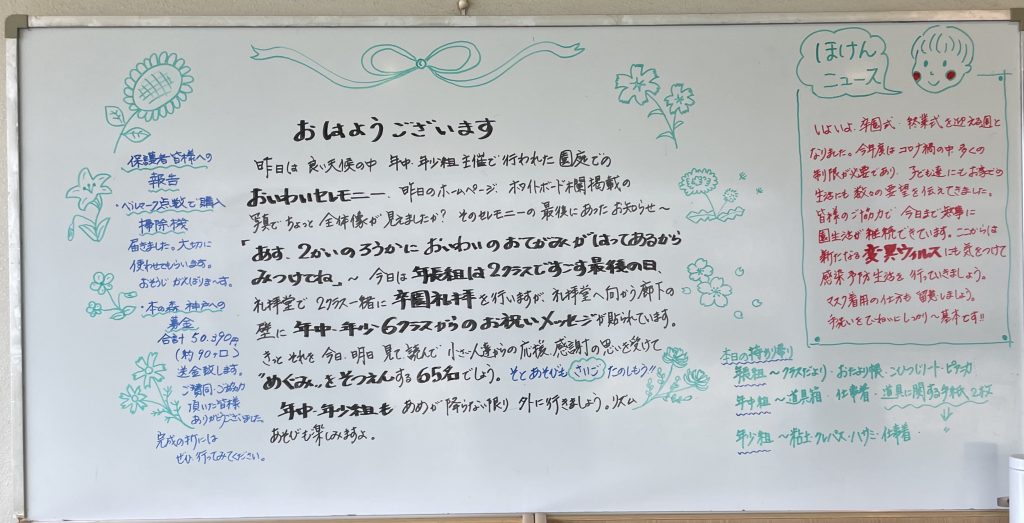 おはようございます
昨日は 良い天候の中 年中・年少組 主催で行われた 園庭での
おいわいセレモニー、昨日のホームページ、ホワイトボード欄掲載の
写真でちょっと 全体像が 見えましたか? そのセレモニーの 最後にあったお知らせ〜
「あす、2かいのろうかに おいわいのおてがみがはってあるから
みつけてね」〜 今日は 年長組は 2クラスですごす最後の日、
礼拝堂で 2クラス一緒に 卒園礼拝を行いますが、礼拝堂へ向かう廊下の
壁に 年中・年少6クラスからのお祝いメッセージが貼られています。
きっと それを 今日、明日 見て読んで 小さい人達からの応援、感謝の思いを受けて
"めぐみ"をそつえんする65名でしょう。そとあそびも さいご たのしもう!!
年中・年少組も あめが降らない限り 外に行きましょう。リズム
あそびも楽しみますよ。
保護者皆様への
報告
・ベルマーク点数で購入
掃除機
届きました。大切に
使わせてもらいます。
おそうじ がんばりまーす。
・本の森 神戸への
募金
合計 50.390円
(約90ヶ口)
送金致します。
ご賛同・ご協力
頂いた皆様
ありがとうございました。
完成の折には
ぜひ、行ってみてください。
ほけん
ニュース
いよいよ、卒園式・終業式を迎える週と
なりました。今年度はコロナ禍の中 多くの
制限が必要であり、子ども達にもお家での
生活にも 数々の要望を伝えてきました。
皆様のご協力で 今日まで無事に
園生活が 継続できています。ここからは
新たなる 変異ウィルスにも気をつけて
感染予防生活を 行っていきましょう。
マスク着用の仕方も 留意しましょう。
手洗いをていねいにしっかり〜基本です!!
本日の持ち帰り
年長組〜クラスだより・おたより帳・こひつじノート・ピアニカ
年中組〜道具箱・仕事着・道具に関する手紙 2枚
年少組〜粘土・クレパス・ハサミ・仕事着・ 〃